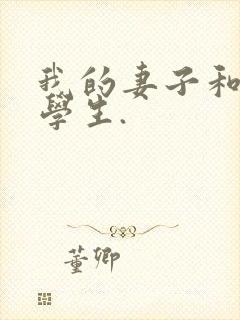 我的妻子和
學生.
董卿